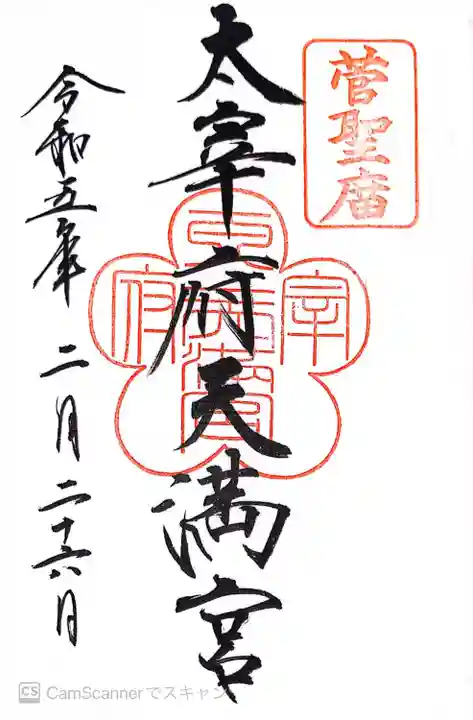 菅聖庿
太宰府天満宮
令和五年二月二十六日
CS CamScannerでスキャン